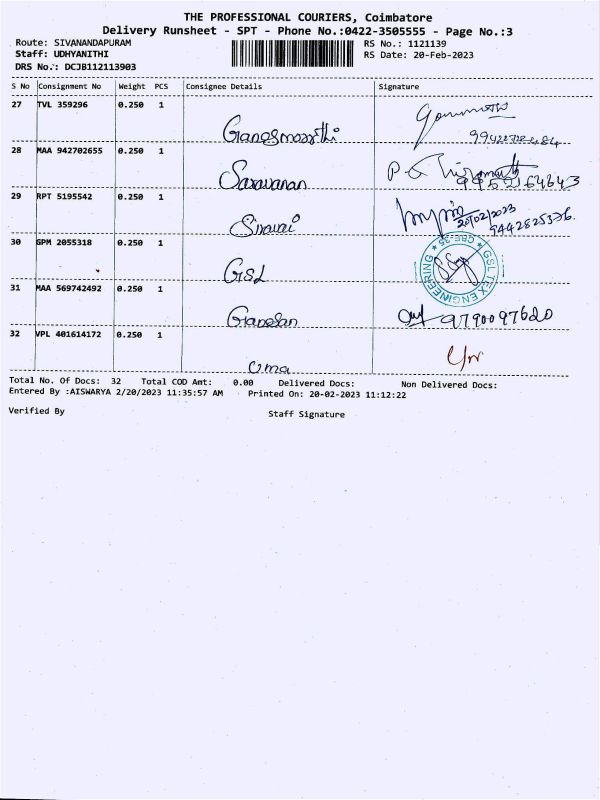 THE PROFESSIONAL COURIERS, Coimbatore
Delivery Runsheet - SPT - Phone No.:0422-3505555 - Page No.:3
Route: SIVANANDAPURAM
RS No.: 1121139
Staff: UDHYANITHI
RS Date: 20-Feb-2023
DRS No.: DCJB112113903
S No Consignment No Weight PCS Consignee Details Signature
27 TVL 359296 0.250 1
Ganesmoorthi
28 MAA 942702655 0.250 1
Saravanan
9952164643
29 RPT 5195542 0.250 1
20/02/2023
Siruvai 9442825376.
30 GPM 2055318 0.250 1
GSL
GSL TEX ENGINEERING * CBE-35 *
31 MAA 569742492 0.250 1
Ganesan 9790097620
32 VPL 401614172 0.250 1
Uma
Total No. Of Docs: 32 Total COD Amt: 0.00 Delivered Docs: Non Delivered Docs:
Entered By :AISWARYA 2/20/2023 11:35:57 AM Printed On: 20-02-2023 11:12:22
Verified By Staff Signature